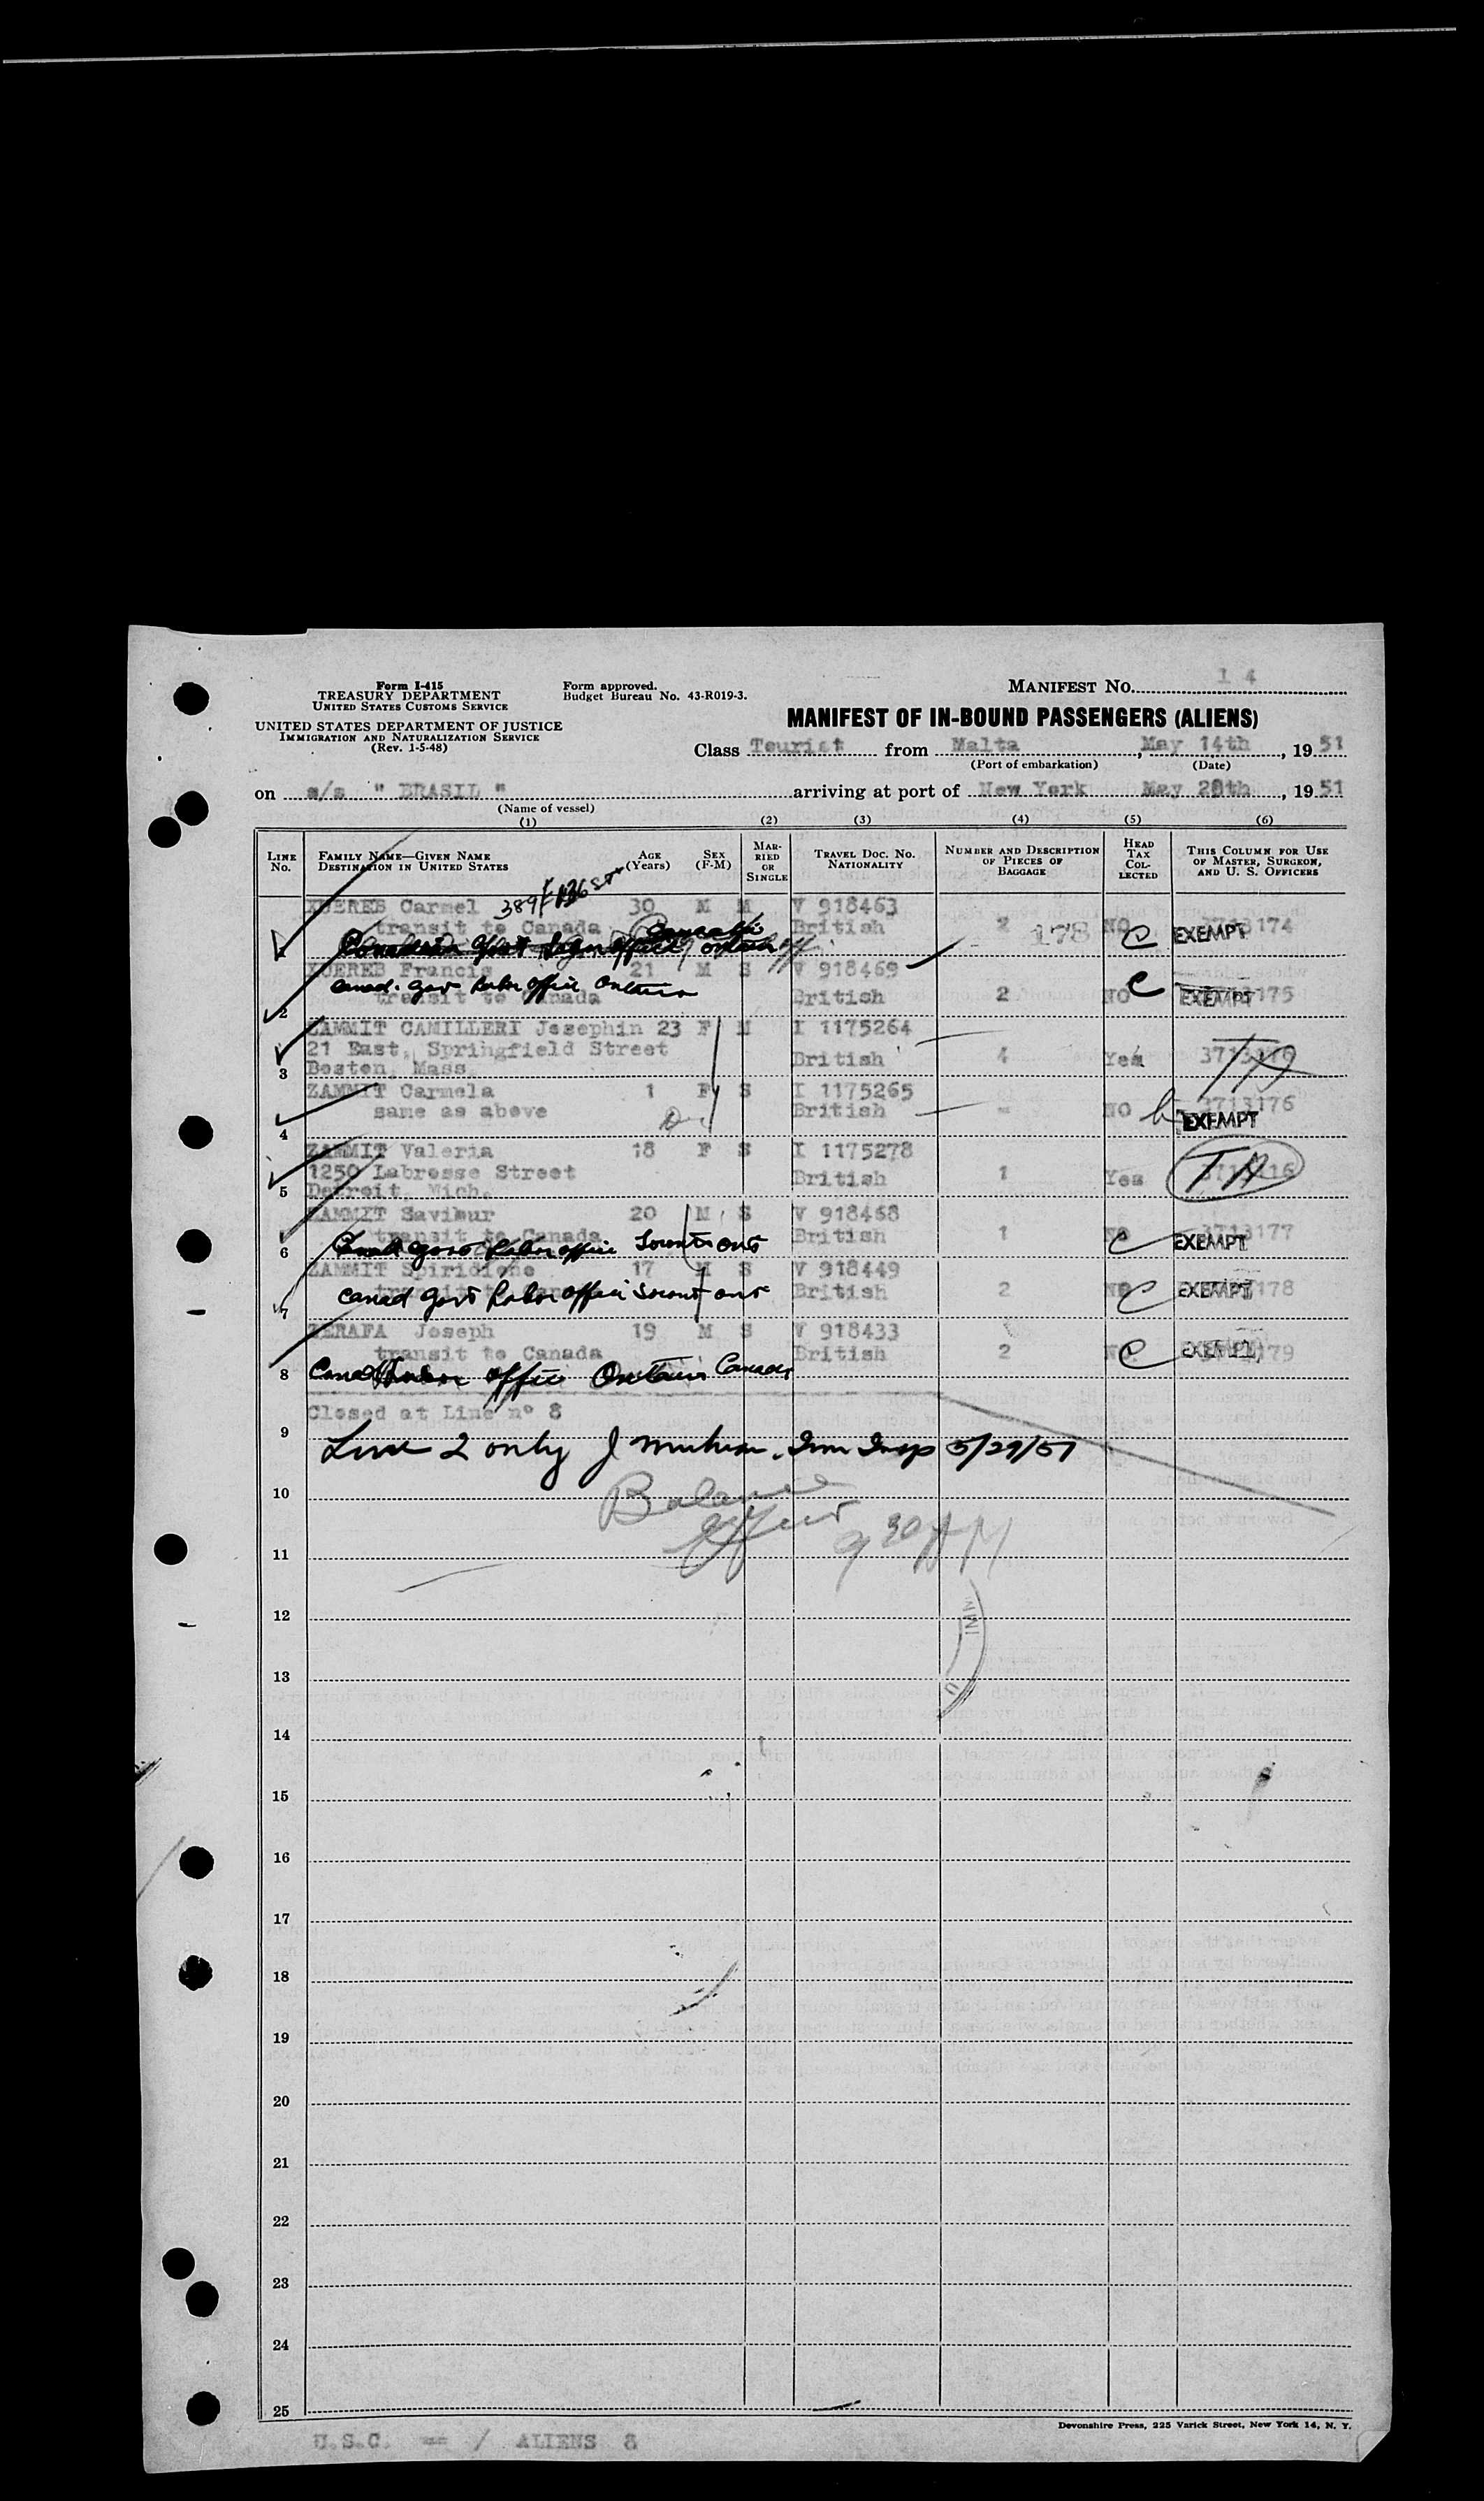 Form I-415
TREASURY DEPARTMENT
UNITED STATES CUSTOMS SERVICE
UNITED STATES DEPARTMENT OF JUSTICE
IMMIGRATION AND NATURALIZATION SERVICE
(Rev. 1-5-48)
Form approved.
Budget Bureau No. 43-R019-3.
MANIFEST NO. 14
MANIFEST OF IN-BOUND PASSENGERS (ALIENS)
Class Tourist from Malta, May 14th, 1951
(Port of embarkation) (Date)
on s/s " BRASIL " arriving at port of New York May 28th, 1951
(Name of vessel)
(1) (2) (3) (4) (5) (6)
LINE NO. FAMILY NAME—GIVEN NAME DESTINATION IN UNITED STATES AGE (Years) SEX (F-M) MARRIED OR SINGLE TRAVEL DOC. NO. NATIONALITY NUMBER AND DESCRIPTION OF PIECES OF BAGGAGE HEAD TAX COLLECTED THIS COLUMN FOR USE OF MASTER, SURGEON, AND U. S. OFFICERS
389 E 136 St
XUEREB Carmel 30 M M V 918463
transit to Canada British 2 178 NO C 3713174 EXEMPT
XUEREB Francis 21 M S V 918469
Canad. Gov Labor Office Ontario
2 transit to Canada British 2 NO C EXEMPT 175
ZAMMIT CAMILLERI Josephin 23 F M I 1175264
21 East, Springfield Street British 4 Yes TA
3 Boston, Mass.
ZAMMIT Carmela 1 F S I 1175265
same as above British - NO 3713176
4 EXEMPT
ZAMMIT Valeria 18 F S I 1175278
1250 Labresse Street British 1 Yes TA
5 Detroit, Mich.
ZAMMIT Saviour 20 M S V 918468
transit to Canada British 1 NO C 3713177 EXEMPT
6 Canad Govt Labor office Toronto Ont
ZAMMIT Spiridione 17 M S V 918449
7 Canad Govt Labor office Toronto Ont British 2 NO C EXEMPT 178
ZERAFA Joseph 19 M S V 918433
transit to Canada British 2 NO C EXEMPT 179
8 Canad Labor Office Ontario Canada
Closed at Line n° 8
9 Line 2 only J Imm Insp 5/29/51
10 Balance
11 9 30 AM
12 IMM
13 U
14
15
16
17
18
19
20
21
22
23
24
25
Devonshire Press, 225 Varick Street, New York 14, N. Y.
U.S.C. == / ALIENS 8